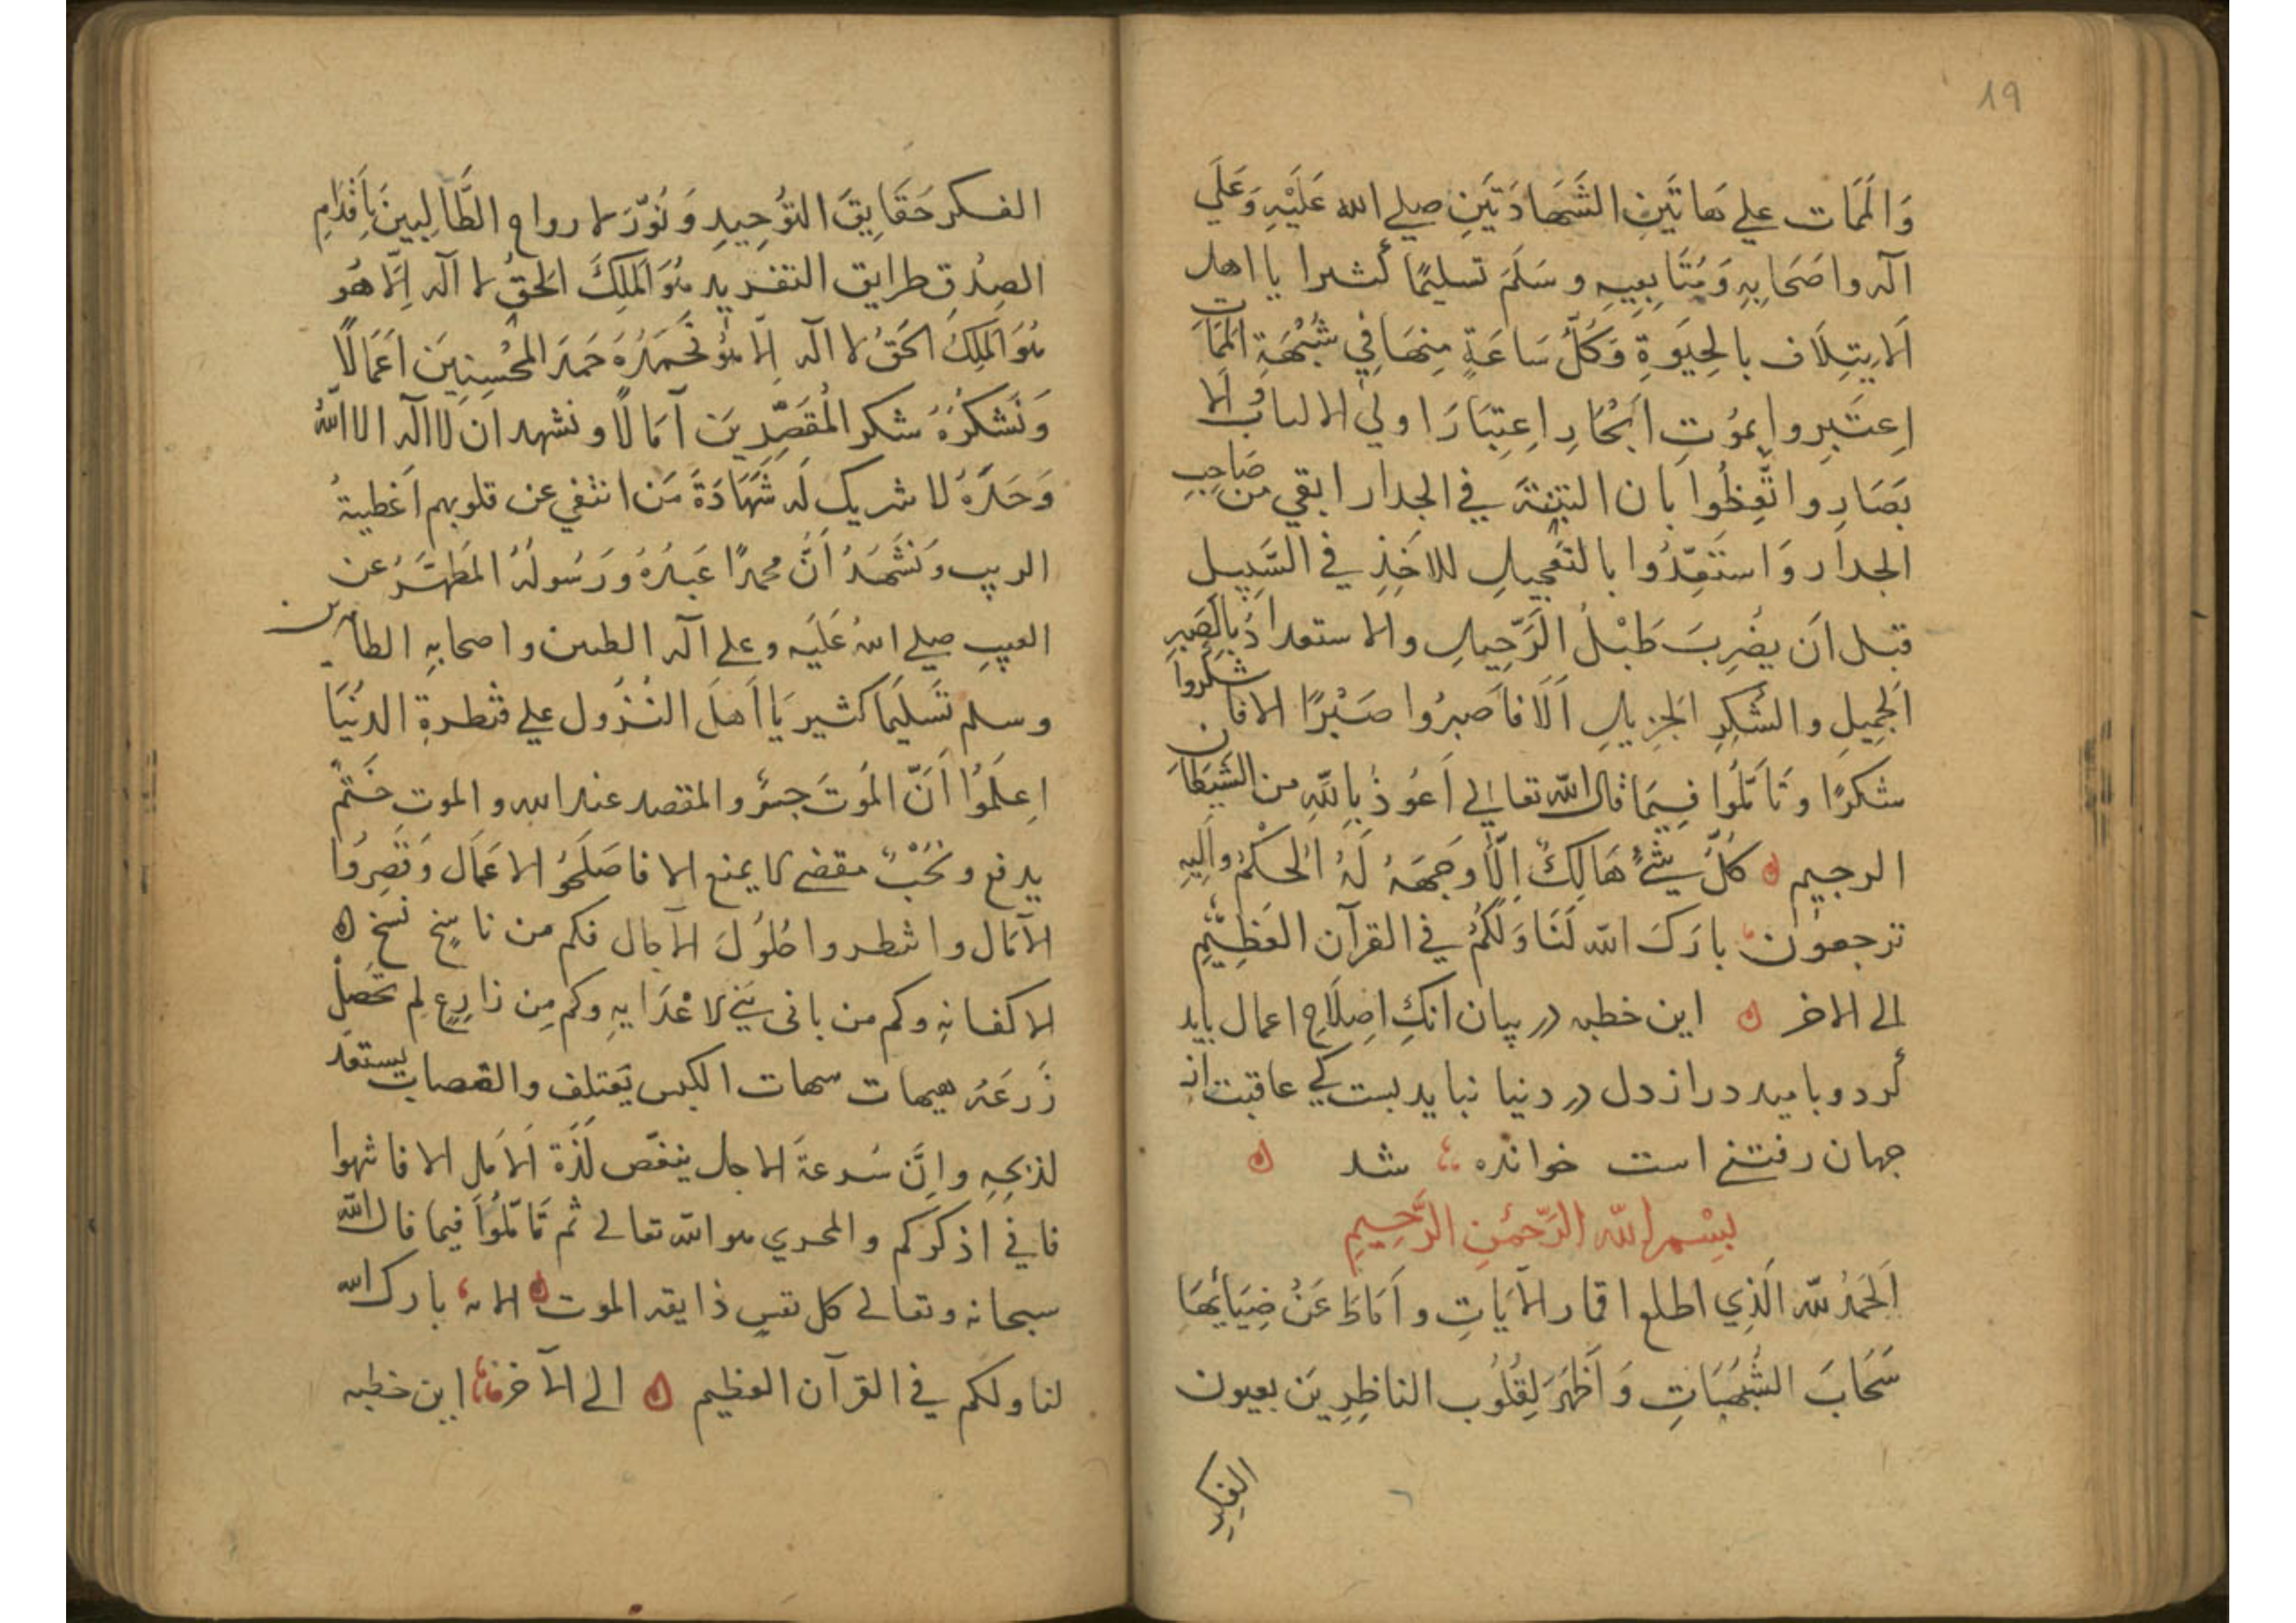 19
وَالمَمَات علي هَاتَينِ الشَهَادَتَينِ صلي الله عَلَيْهِ وَعَلَي
آله واصَحَابِهِ وَمُتَابِعِيهِ وسَلَّمَ تسليمًا كثيرا يا اهل
الايتِلَاف بالحِيَوةِ وَكُلُّ سَاعَةٍ مِنهَا فِي شُبُهَةِ المَمَات
اِعتَبِروا بمَوُتِ اِعتِبَارَا اولي الالباب اَلَا
بَصَارِ واتَّعِظُوا بان في الجدار ابقي من صَاحِبِ
الجدار وَاستَعِدُّوا بالتعجيلِ للاخذِ في السَّبِيلِ
قبل ان يضرِبَ طَبْلُ الرَّحِيلِ والاستعدادُ بِالصَبرِ
الجَمِيلِ والشُكرِ الجَزِيلِ اَلَا فاَصبِرُوا صَبْرًا الا فاشكروا
شكرًا وتَأمَّلُوا فِيمَا قال الله تعالي اَعُوذُ بِاللهِ من الشَيطَان
الرجيم كُلُّ شَيْئٍ هَالِكٌ اِلَّا وَجهَهُ لَهُ الحُكْمُ وَاِلَيهِ
ترجعون بارَكَ الله لَنَا وَلَكُمْ في القرآن العَظِيمِ
الي الاخر اين خطبه در بيان انكِ اِصلَاحِ اعمال بايد
كرد وباميد دراز دل در دنيا نبايد بست كي عاقبت از
جهان رفتنے است خوانده شد
بِسْمِ الله الرَّحْمٰنِ الرَّحِيمِ
اَلحَمدُ لله الَّذِي اطلع اقمار الآيَاتِ واَمَاطَ عَنْ ضِيَائِهَا
سَحَابَ الشُبُهَاتِ وَاَظهَرَ لِقُلُوب الناظِرِينَ بعيون
الفِكرِ
الفكر حَقَايِقَ التَوُحِيدِ وَنَوَّرَ لارواح الطَّالِبِينَ بِاَقدَامِ
الصِدُقِ طرايق التفريد هُوَ المَلِكُ الحَقُّ لا آله اِلَّا هُوَ
هُوَ المَلِكُ الحَقُّ لا اله اِلَّا هُوَ نَحمَدُهُ حَمدَ المُحْسِنِينَ اَعمَالًا
وَنَشكُرُهُ شكر المُقَصِّرِينَ آمَالًا ونشهد ان لااله الا اللهُ
وَحدَهُ لا شريك لَه شَهَادَةَ مَن انتفي عن قلوبهم اَغطِيةُ
الريب وَنَشَهَدُ اَنَّ محمدًا عَبدُهُ وَرَسُولُهُ المُطَهَّرُ عن
العيبِ صلي اللهُ عَلَيه وعلي آله الطيبين واصحابِهِ الطاهرين
وسلم تَسلِيمًا كثير يَا اَهلَ النُزُول علي قنطرةِ الدنُيَا
اِعلَمُوا اَنَّ المَوتَ جسرٌ والمقصد عند الله والموت حَتمٌ
يدفع ونَحْبٌ مقضي لا يمنع الا فاصلحُوُ الاعمَال وَقَصِرُوا
الآمَال وانتظروا حُلُوُلَ الآجال فكم من ناسِخٍ نسَخ
لاكفانِهِ وكم من بانی بَنی لاعْدَايِهِ وكم مِن زارِعٍ لم تحصِل
زَرعَهُ هيهات هيهات الكبش يَعتَلِف والقصاب يستعد
لذبحِهِ واِنَّ سُرعةَ الاجال ينغّص لَذّة الاَمَلِ الا فانتهوا
فاني اذكرَكم والمجري هو الله تعالے ثم تَأمَّلُوا فيما قال الله
سبحانه وتعالے كل نفسٍ ذايقه الموت الآيه بارك الله
لنا ولكم في القرآن العظيم الي الآخر اين خطبه